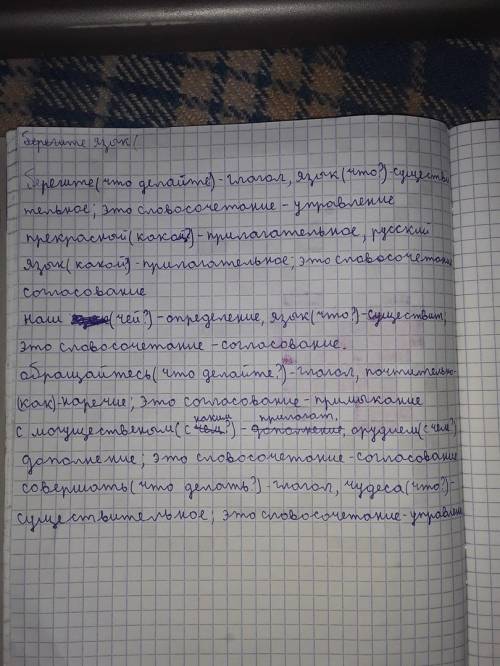 берегите язык!
берегите (что делайте) - глагол, язык (что?) - существи
тельное; это словосочетание - управление
прекрасной (какой?) - прилагательное, русский
язык (какой) - прилагательное; это словосочетание
согласование
наш (чей?) - определение, язык (что?) - существит,
это словосочетание - согласование.
обращайтесь (что делайте?) - глагол, почтительно-
(как) - наречие; это согласование - примыкание
каким прилагат.
с могущественым (с чем?) - дополнение, орудием (с чем?
дополнение; это словосочетание - согласование
совершать (что делать?) - глагол, чудеса (что?) -
существительное; это словосочетание - управлени